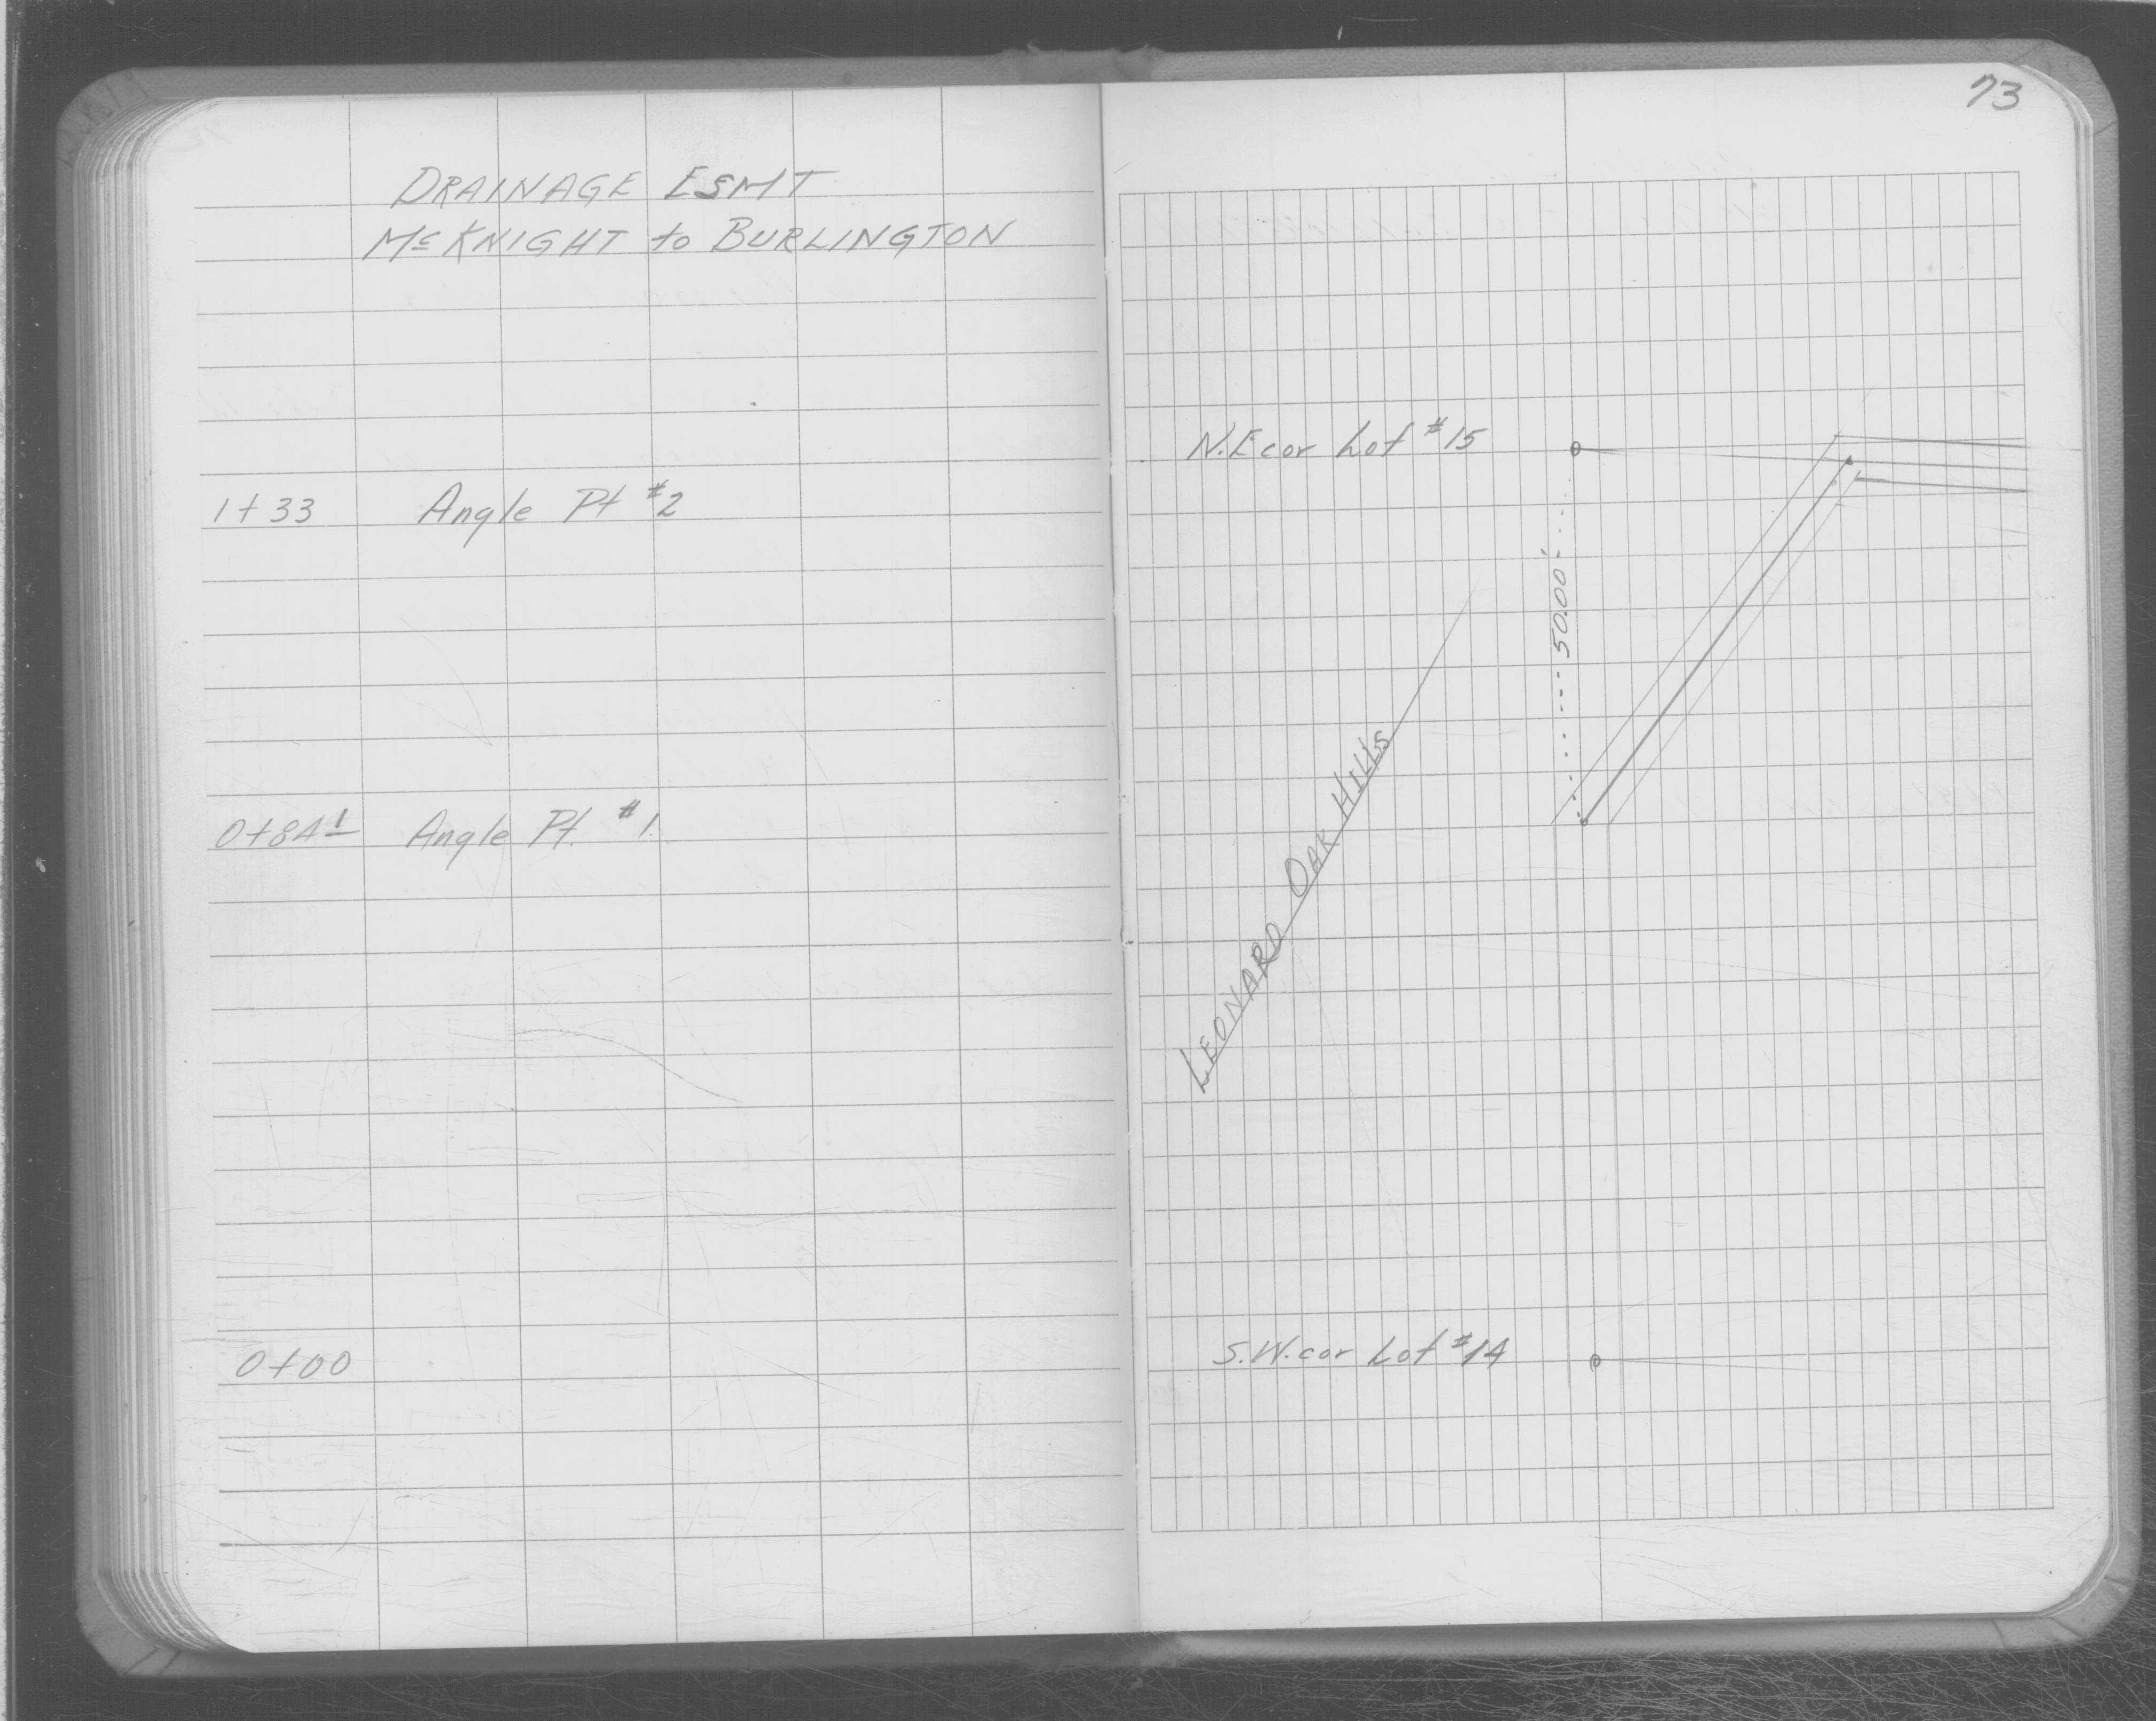 73
DRAINAGE ESMT
McKNIGHT to BURLINGTON
N.E cor Lot #15
1+33 Angle Pt #2
50.00'
0+84 1 Angle Pt. #1
LEONARD OAK HILLS
0+00
S.W. cor Lot #14